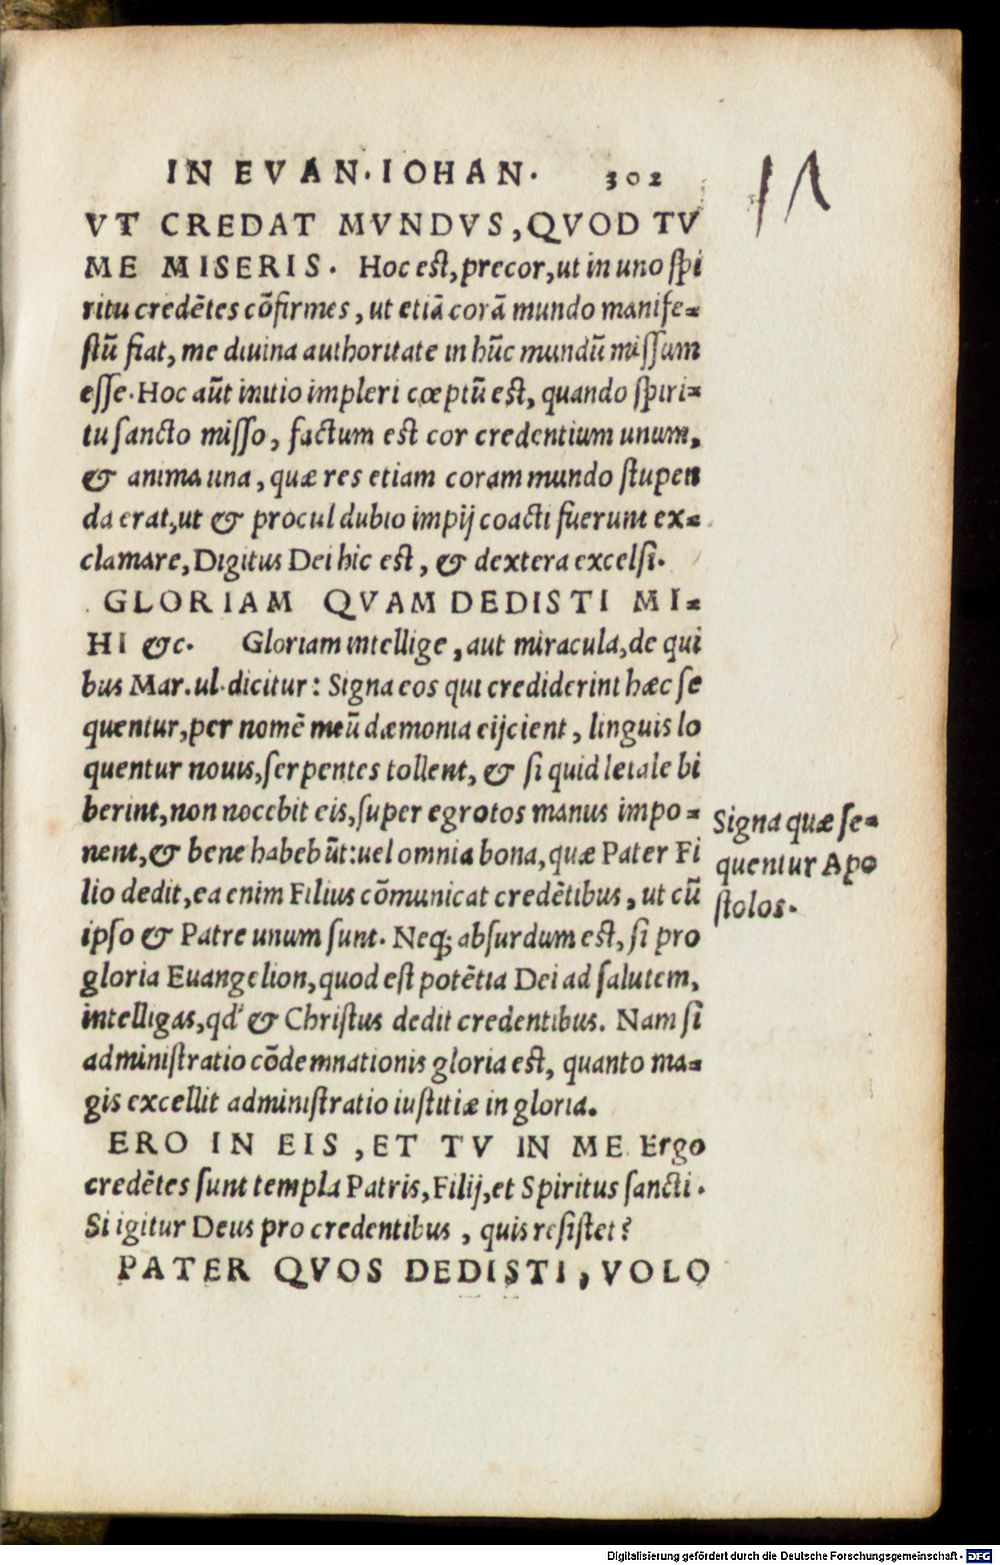 IN EVAN. IOHAN. 302
VT CREDAT MVNDVS, QVOD TV
ME MISERIS. Hoc est, precor, ut in uno spi
ritu credētes cōfirmes, ut etiā corā mundo manife-
stū fiat, me diuina authoritate in hūc mundū missum
esse. Hoc aūt initio impleri cœptū est, quando spiri-
tu sancto misso, factum est cor credentium unum,
& anima una, quæ res etiam coram mundo stupen
da erat, ut & procul dubio impij coacti fuerunt ex-
clamare, Digitus Dei hic est, & dextera excelsi.
GLORIAM QVAM DEDISTI MI-
HI &c. Gloriam intellige, aut miracula, de qui
bus Mar. ul. dicitur: Signa eos qui crediderint hæc se
quentur, per nomē meū dæmonia eijcient, linguis lo
quentur nouis, serpentes tollent, & si quid letale bi
berint, non nocebit eis, super egrotos manus impo-
nent, & bene habebūt: uel omnia bona, quæ Pater Fi
lio dedit, ea enim Filius cōmunicat credētibus, ut cū
ipso & Patre unum sunt. Neq; absurdum est, si pro
gloria Euangelion, quod est potētia Dei ad salutem,
intelligas, qd' & Christus dedit credentibus. Nam si
administratio cōdemnationis gloria est, quanto ma-
gis excellit administratio iustitiæ in gloria.
ERO IN EIS, ET TV IN ME Ergo
credētes sunt templa Patris, Filij, et Spiritus sancti.
Si igitur Deus pro credentibus, quis resistet?
PATER QVOS DEDISTI, VOLO
Signa quæ se-
quentur Apo
stolos.
Digitalisierung gefördert durch die Deutsche Forschungsgemeinschaft - DFG